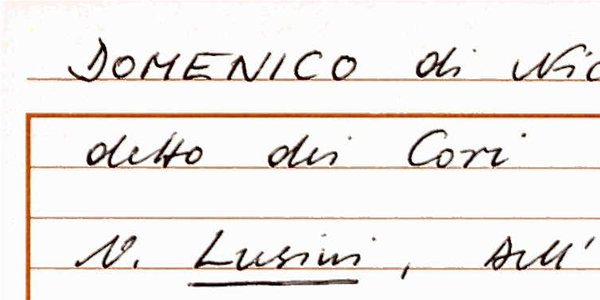 DOMENICO di Nic
detto dei Cori
V. Lusini, Dell'